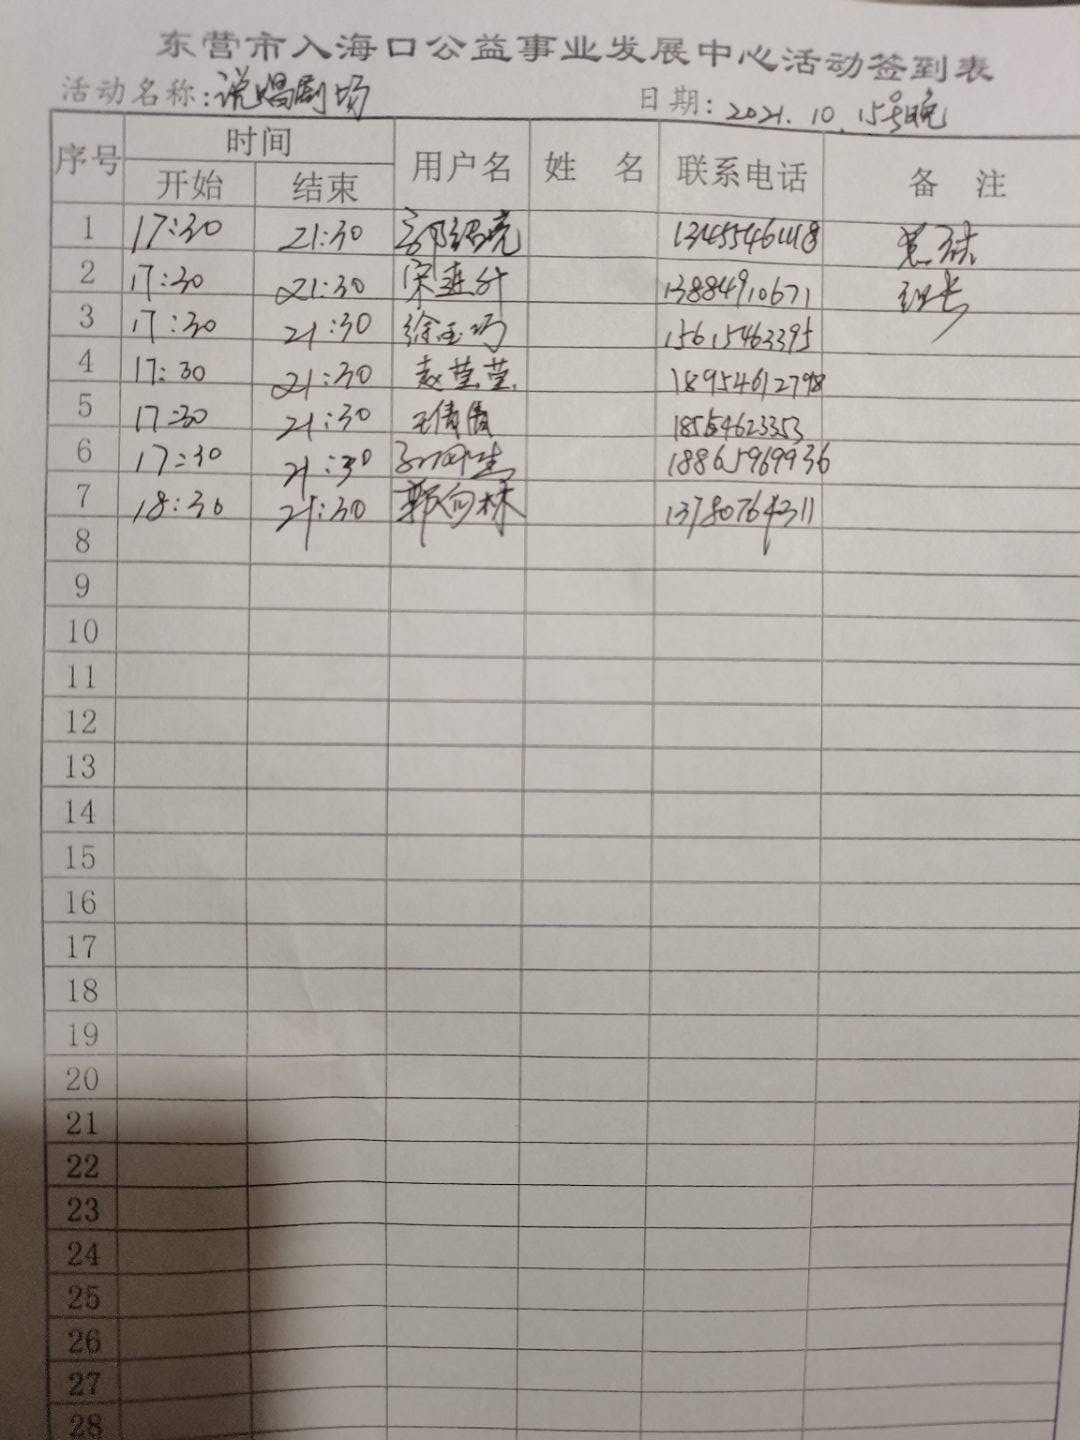 东营市入海口公益事业发展中心活动签到表
活动名称:说唱剧场 日期:2021.10.15号晚
序号 时间 用户名 姓 名 联系电话 备 注
开始 结束
1 17:30 21:30 郭绍亮
2 17:30 21:30 宋连升 13884910671 组长
3 17:30 21:30 徐玉巧 15615463395
4 17:30 21:30 赵莹莹 18954612798
5 17:30 21:30 王倩倩
6 17:30 21:30 18865969936
7 18:30 21:30 郭向林 13780764311
8
9
10
11
12
13
14
15
16
17
18
19
20
21
22
23
24
25
26
27
28